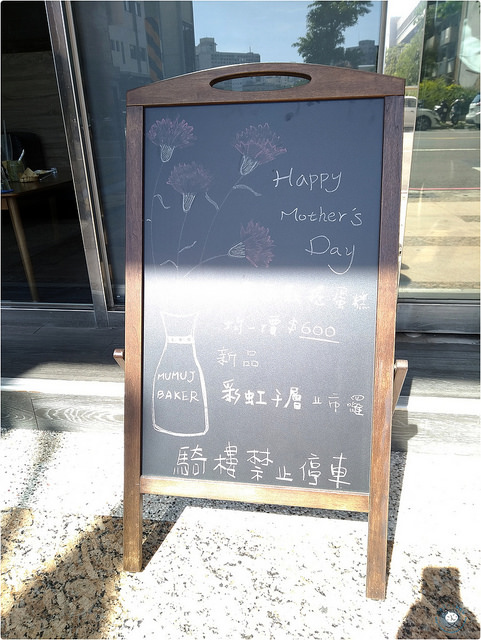 Happy
Mother's
Day
蛋糕
均一價 $600
新品
彩虹千層 上市囉
MUMUJ
BAKER
騎樓禁止停車